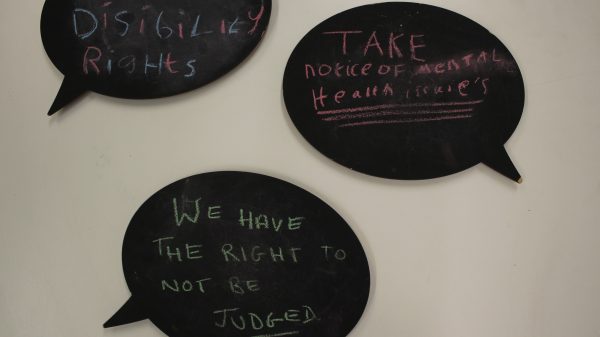 DiSiBiLity
RigHts
TAKE
notice OF MENTAL
Health issue's
WE HAVE
THE RIGHT TO
NOT BE
JUDGED